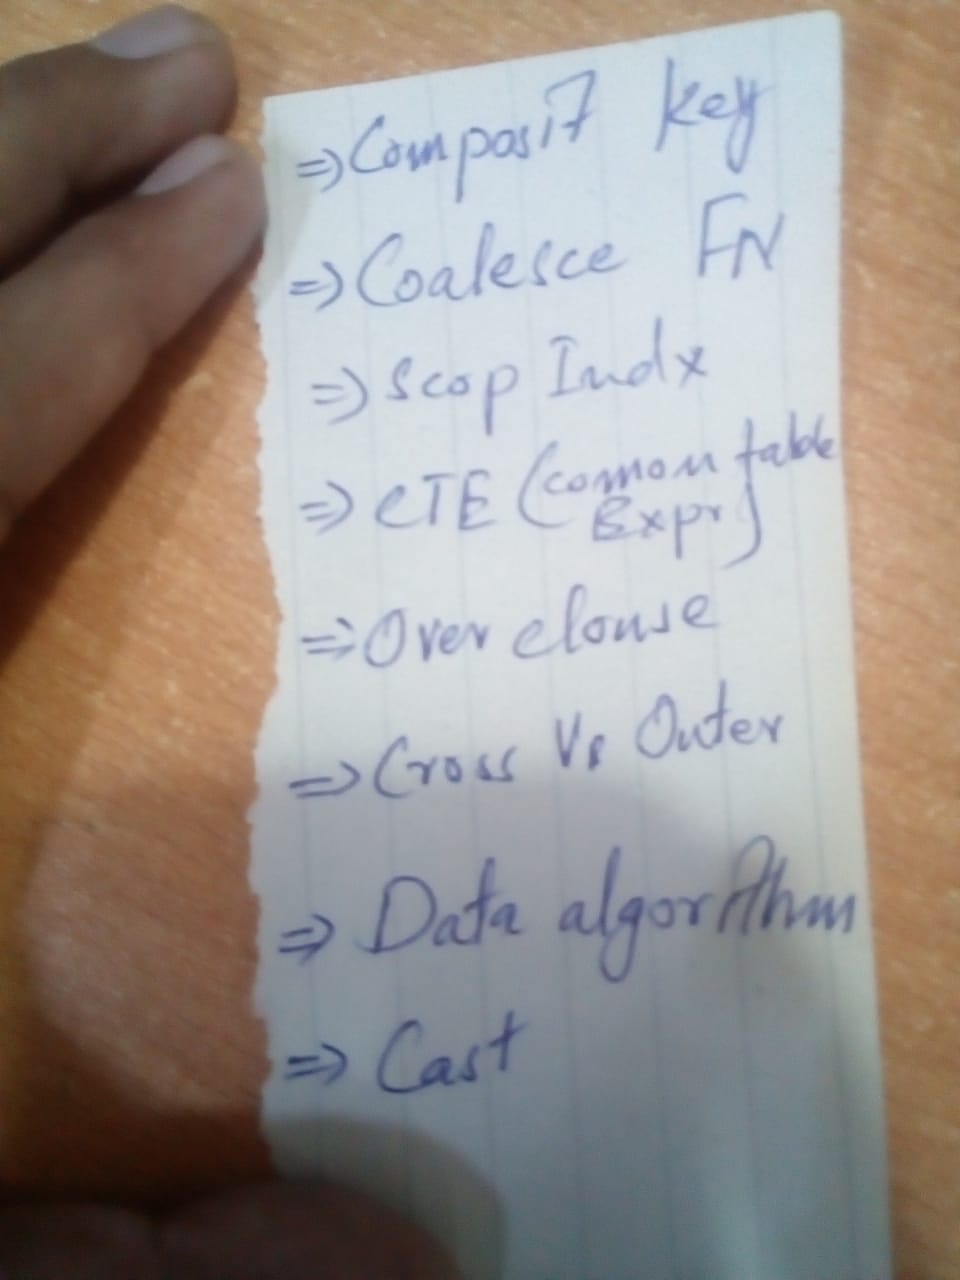 ⇒ Composit key
⇒ Coalesce FN
⇒ Scop Indx
⇒ CTE (comom table
Expr)
⇒ Over clouse
⇒ Cross Vs Outer
⇒ Data algorithm
⇒ Cast